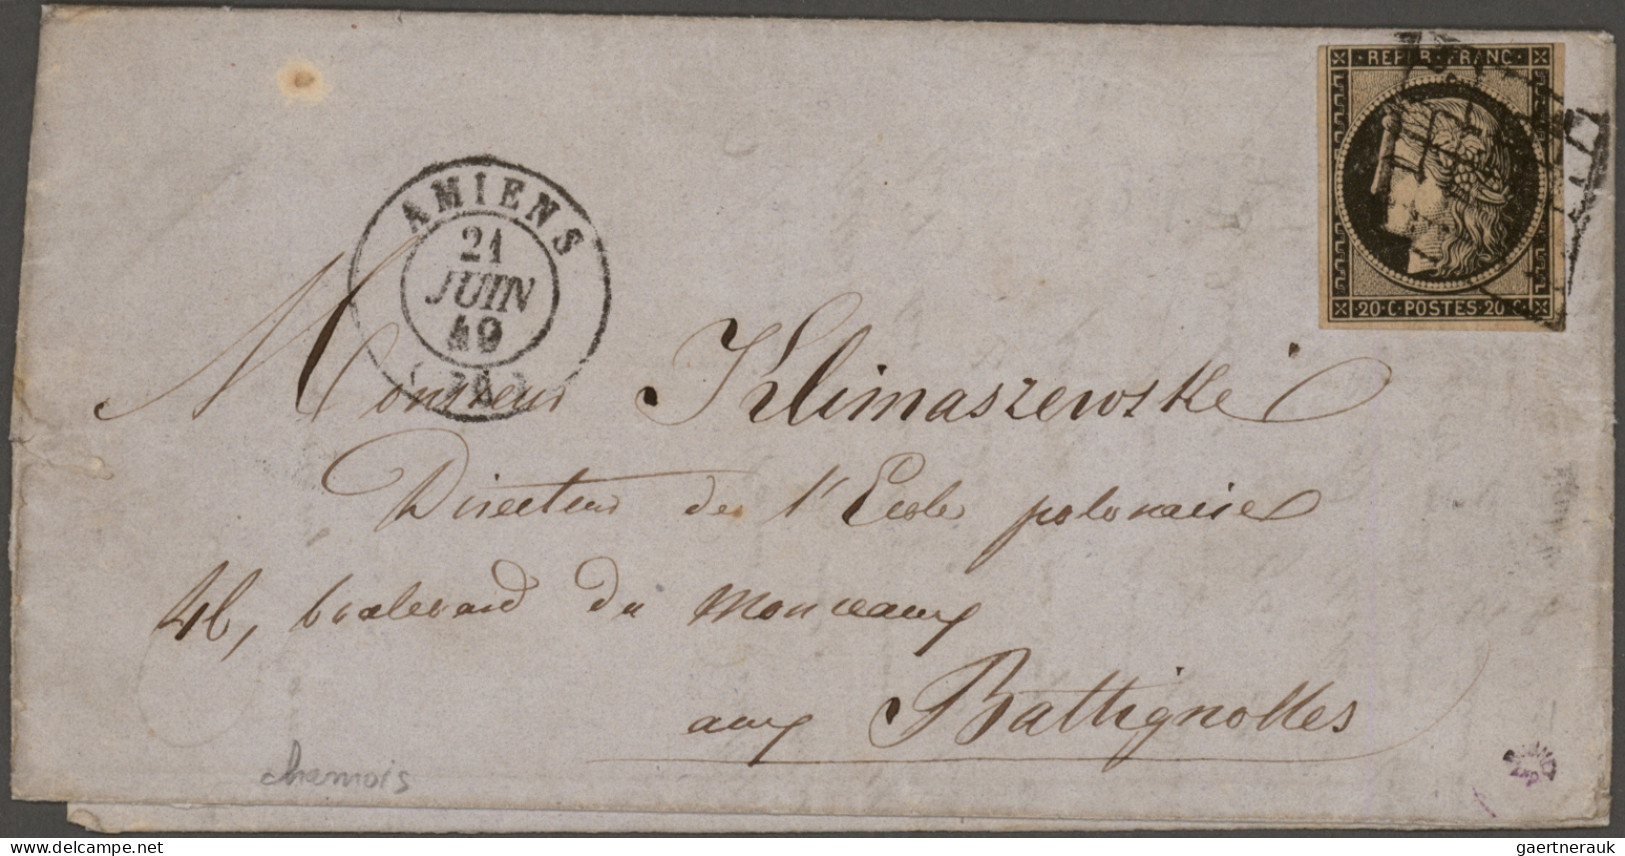 REPUB. FRANC.
20·C·POSTES·20·C
AMIENS
21
JUIN
49
Monsieur Klimaszewski
Directeur de l'Ecole polonaise
46, boulevard du Monceaux
aux Battignolles
chamois
delcampe.net
gaertnerauk